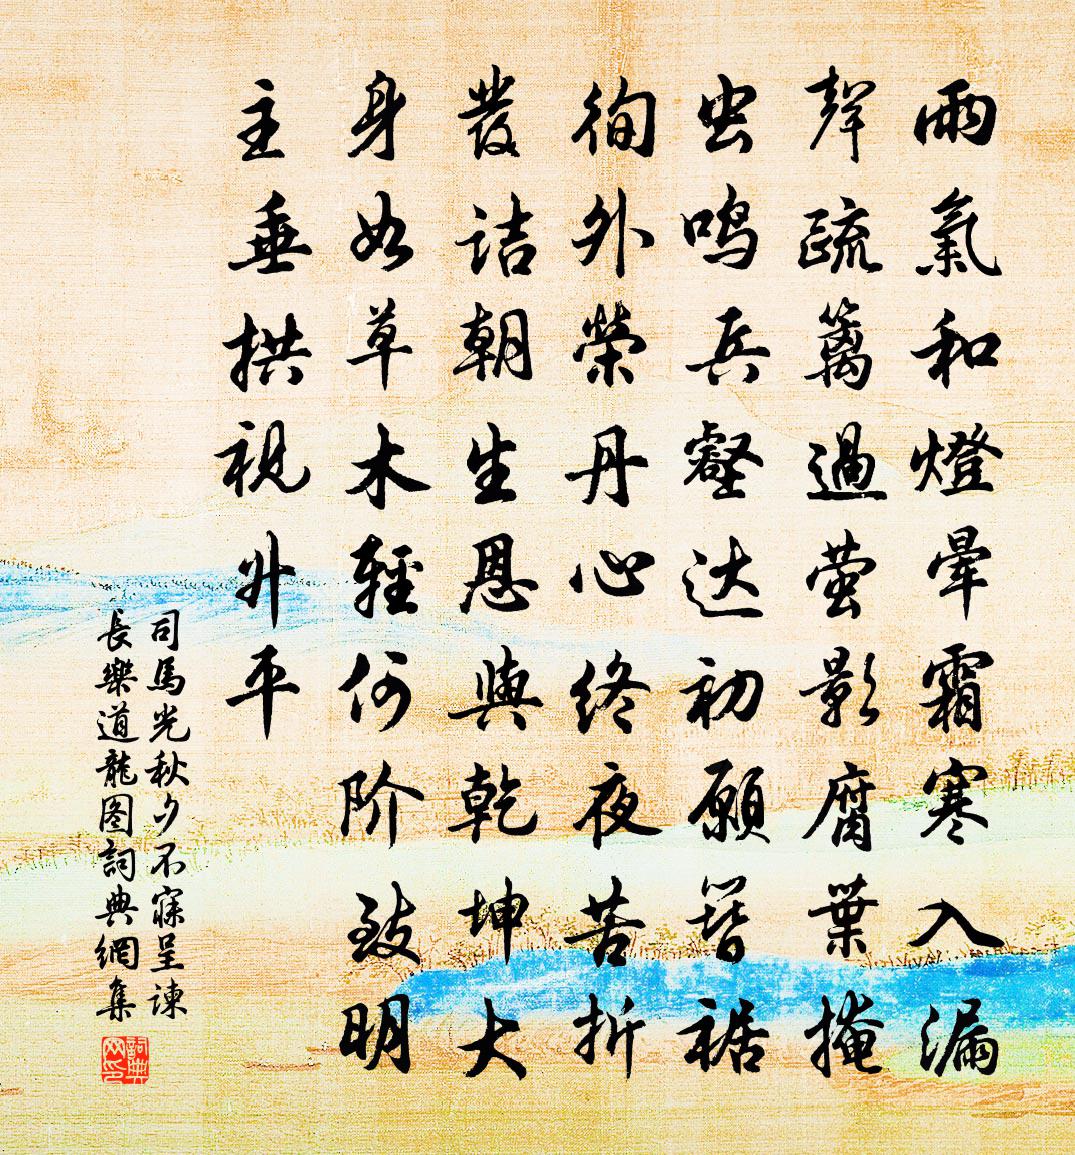 雨氣和燈暈霜寒入漏
聲疏籬過萤影腐葉掩
虫鸣兵壑达初願簪裾
徇外榮丹心终夜苦折
發诘朝生恩與乾坤大
身如草木輕何阶致明
主垂拱視升平
司馬光秋夕不寐呈諫
長樂道龍图詞典網集
詞典网印